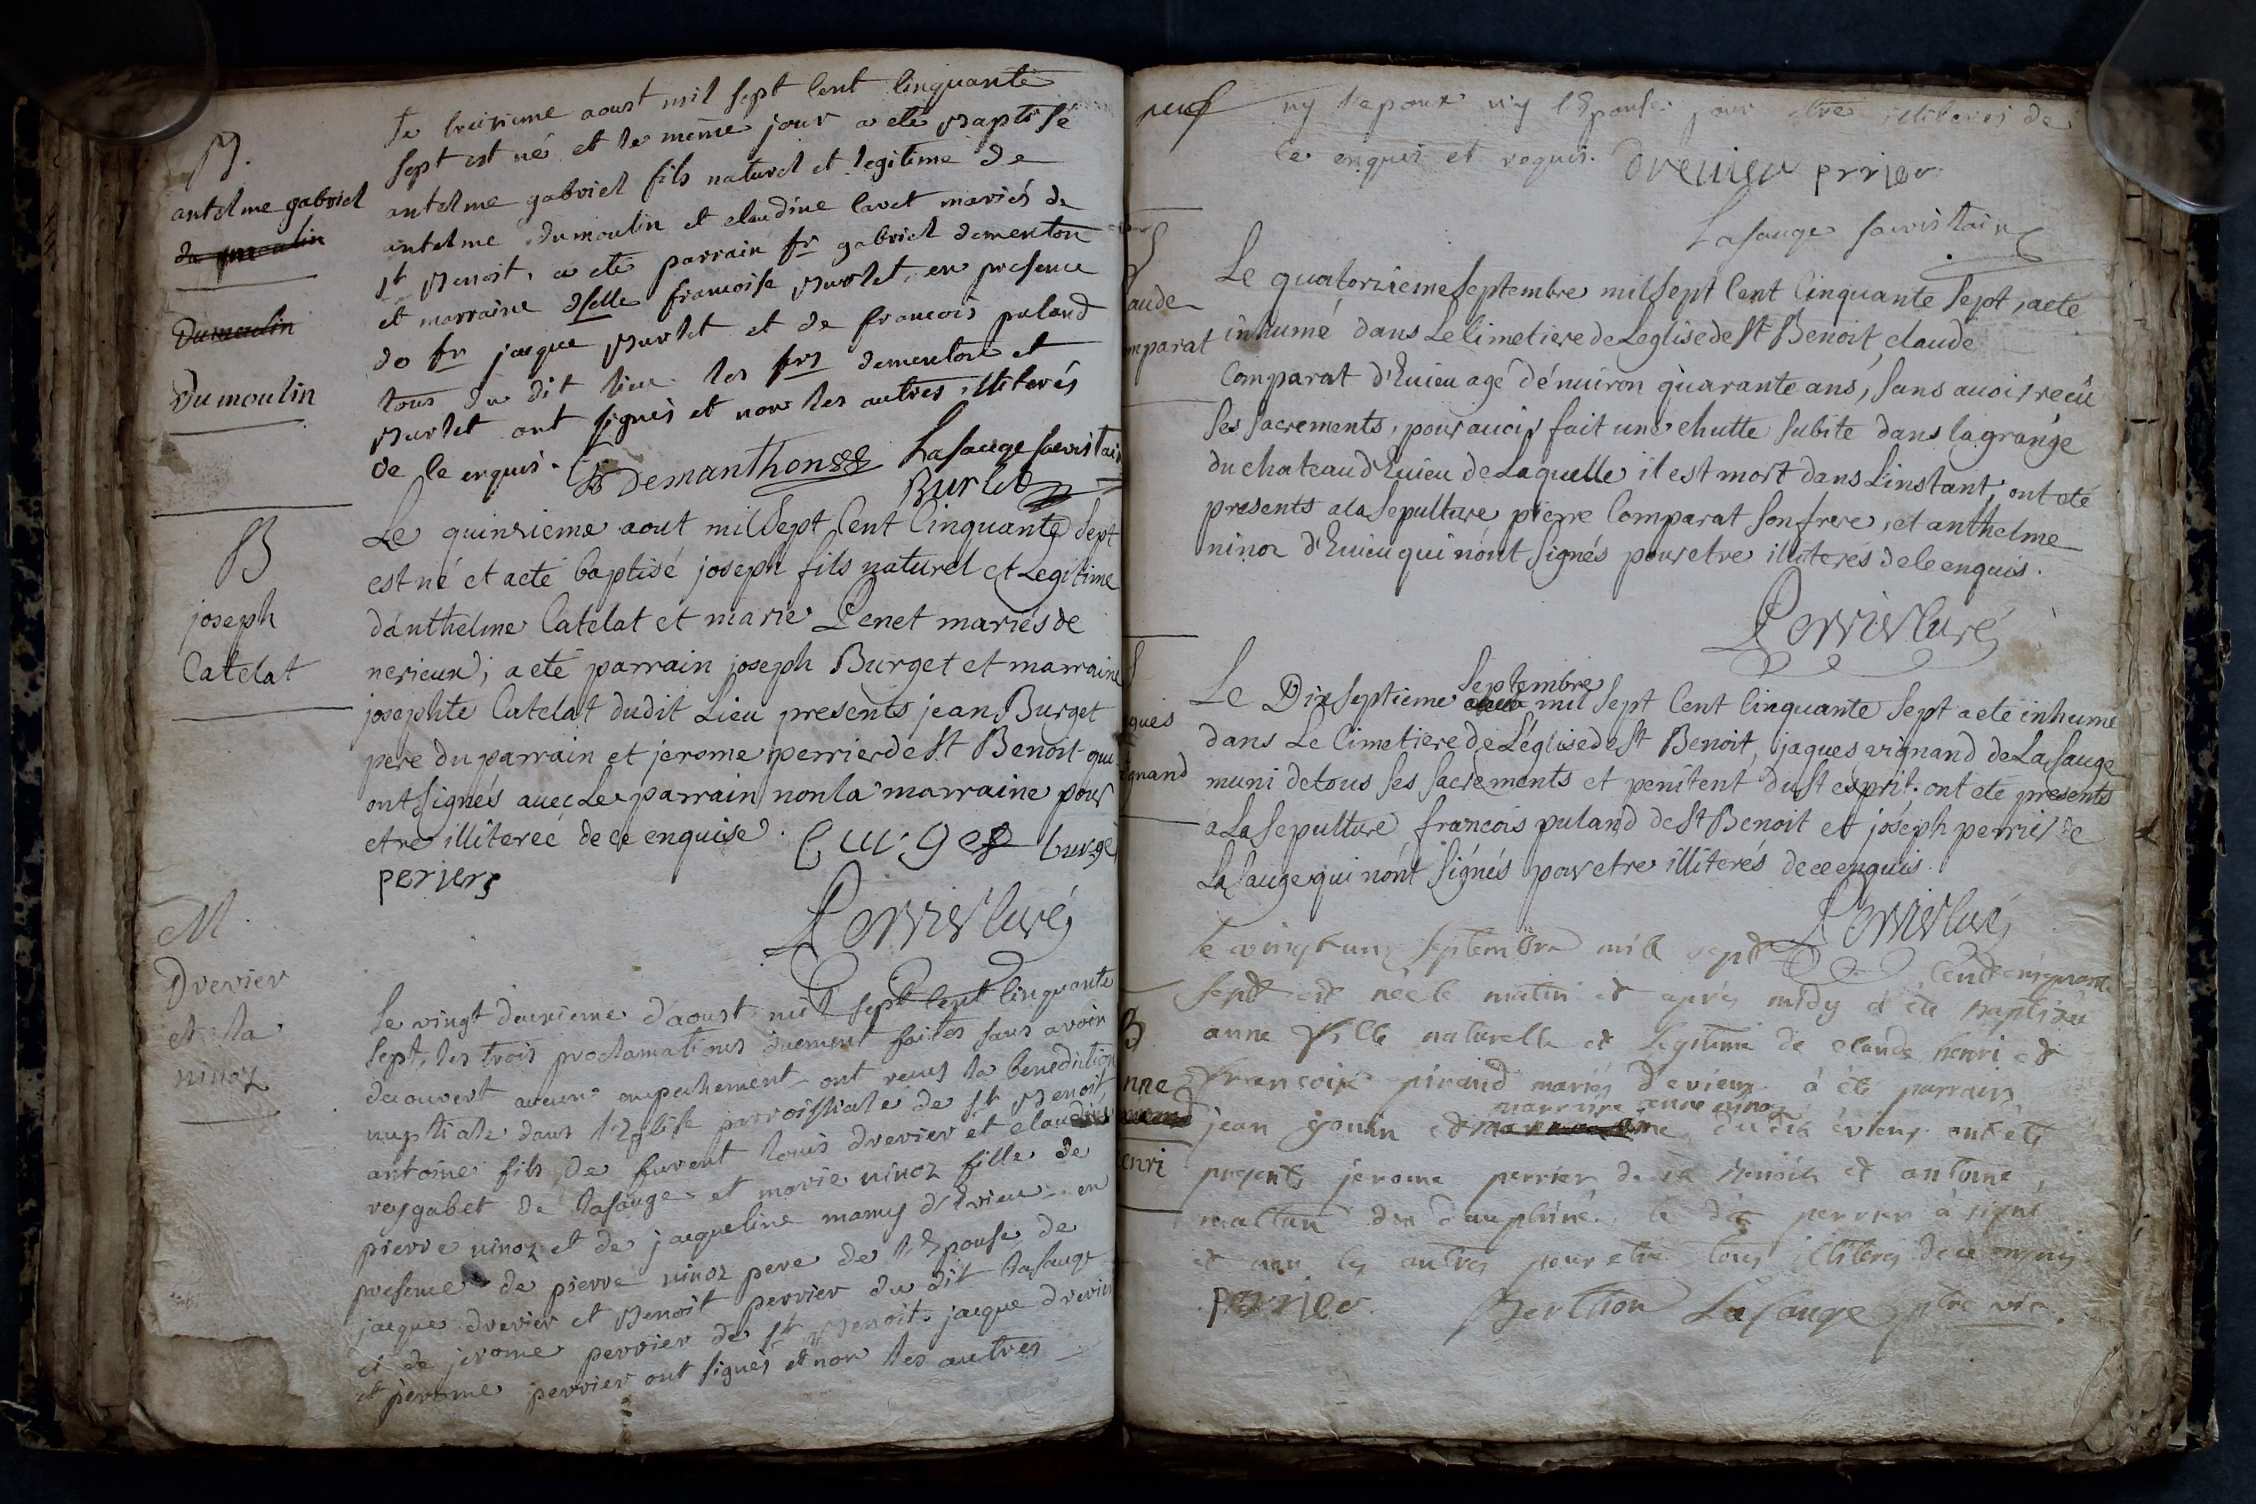 B.
antelme gabriel
du moulin
Dumoulin
Dumoulin
Le treizieme aoust mil sept Cent Cinquante
sept est né et le même jour a eté Baptisé
antelme gabriel fils naturel et legitime de
antelme dumoulin et claudine Cavet mariés de
st Benoit, a eté parrain sr gabriel dementon
et marraine dselle francoise Burlet, en presence
do sr jacque Burlet et de francois puland
tous du dit lieu les srs dementon et
Burlet ont signés et non les autres illiterés
de le enquis.
Demanthon Lasauge sacristain
Burlet
B
joseph
Catelat
Le quinzieme aout mil Sept Cent Cinquante Sept
est né et acté baptisé joseph fils naturel et Legitime
d'anthelme Catelat et marie Penet mariés de
nerieux; a eté parrain joseph Burget et marraine
josephte Catelat dudit Lieu presents jean Burget
pere du parrain et jerome perrier de St Benoit qui
ont Signés avec Le parrain non la marraine pour
etre illitereé de ce enquise. Burget burge
perjers
Perrier Curé
M.
Drevier
et la
ninoz
Le vingt deuxieme d'aoust mil sept Cent Cinquante
sept, les trois proclamations duement faites sans avoir
decouvert aucun empechement ont recus la benediction
nuptiale dans l'Eglise parroissiale de st Benoit
antoine fils de furent louis drevier et claudine
reygabet de lasauge et marie ninoz fille de
pierre ninoz et de jacqueline mamy d'Evieu en
presence de pierre ninoz pere de l'Epouse de
jacque drevier et Benoit perrier du dit lasauge
et de jerome perrier de st Benoit. jacque drevier
et jerome perrier ont signés et non les autres
ny l'epoux ny l'Epouse pour etre illiterés de
ce enquis et requis. Drevier prrier
Lasauge sacristain
S
aude
mparat
Le quatorzieme Septembre mil Sept Cent Cinquante Sept, acté
inhumé dans Le Cimetiere de Leglise de St Benoit, claude
Comparat d'Evieu agé d'énuiron quarante ans, Sans auoir reçû
Ses Sacrements, pour auoir fait une chutte Subite dans la grange
du chateau d'Evieu de Laquelle il est mort dans L'instant, ont eté
presents a la Sepulture pierre Comparat Son frere, et anthelme
ninoz d'Evieu qui n'ont Signés pour etre illiterés de le enquis.
Perrier Curé
S
ques
ignand
Le Dix Septieme Septembre mil Sept Cent Cinquante Sept a eté inhumé
dans Le Cimetiere de L'église de St Benoit, jaques vignand de La Sauge
muni de tous Ses Sacrements et penitent du St esprit. ont eté presents
a La Sepulture francois puland de St Benoit et joseph perrier de
La Sauge qui n'ont Signés pour etre illiterés de ce enquis.
Perrier Curé
B
nne
enri
Le vingt un Septembre mil sept Cent cinquante
Sept est née le matin et aprés midy a été baptisée
anne fille naturelle et Legitime de claude henri et
Francoise piraud mariés d'evieux à été parrain
jean gonin et marraine anne ninoz du dit évieux ont été
presents jerome perrier de st Benoit et antoine
mattan du dauphiné. le dit perrier à signé
et non les autres pour etre tous illiterés de ce enquis
perrier Berthon Lasauge ptre vic.